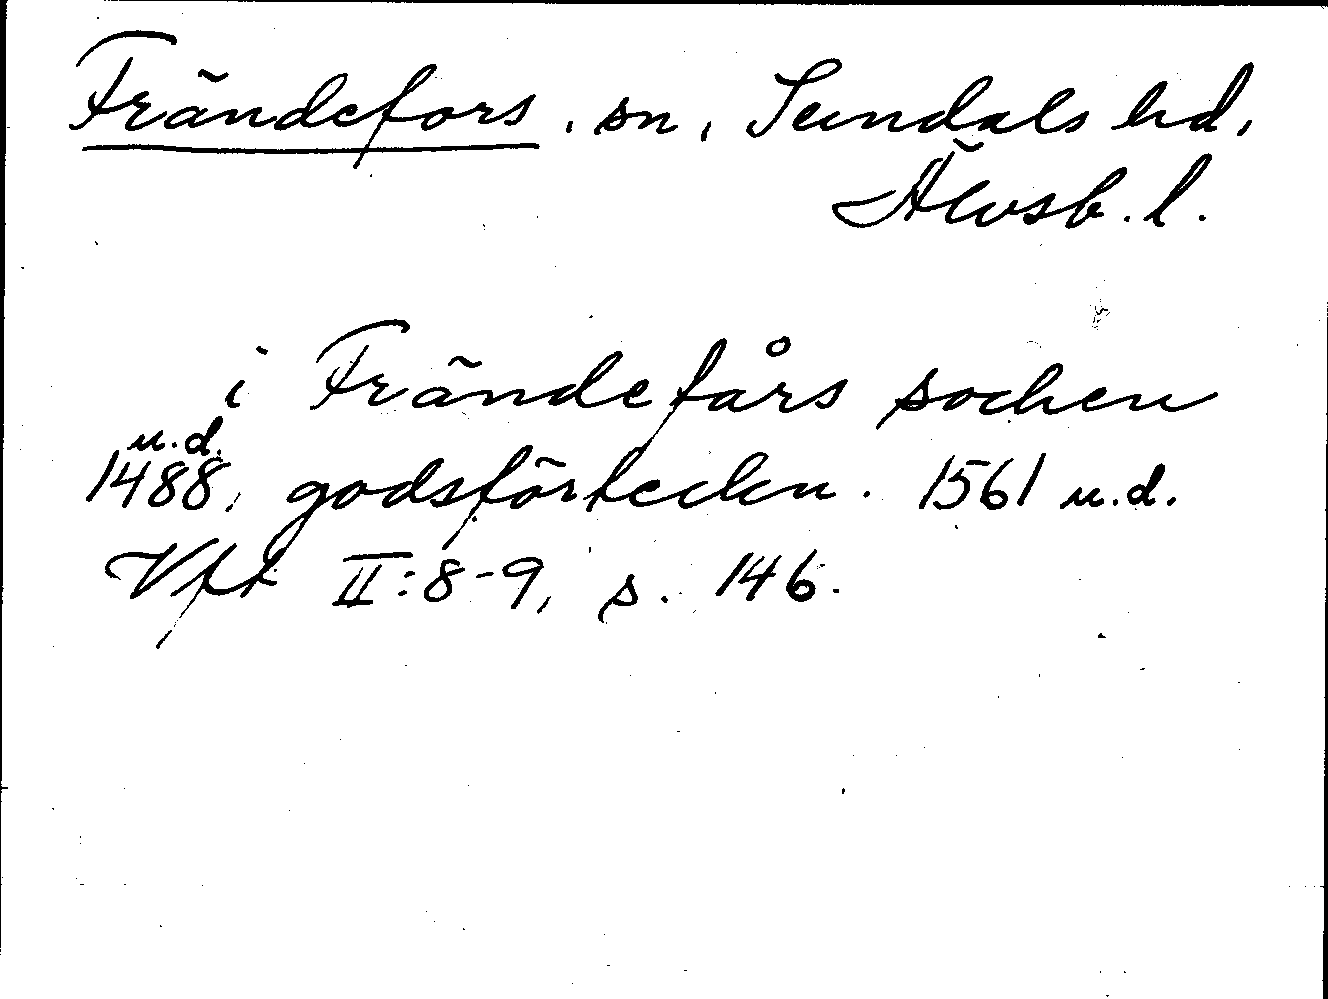 Frändefors, sn, Sundals hd,
Älvsb. l.
i Frändefårs sochen
u.d.
1488, godsförteckn. 1561 u.d.
Vft II:8-9, s. 146.